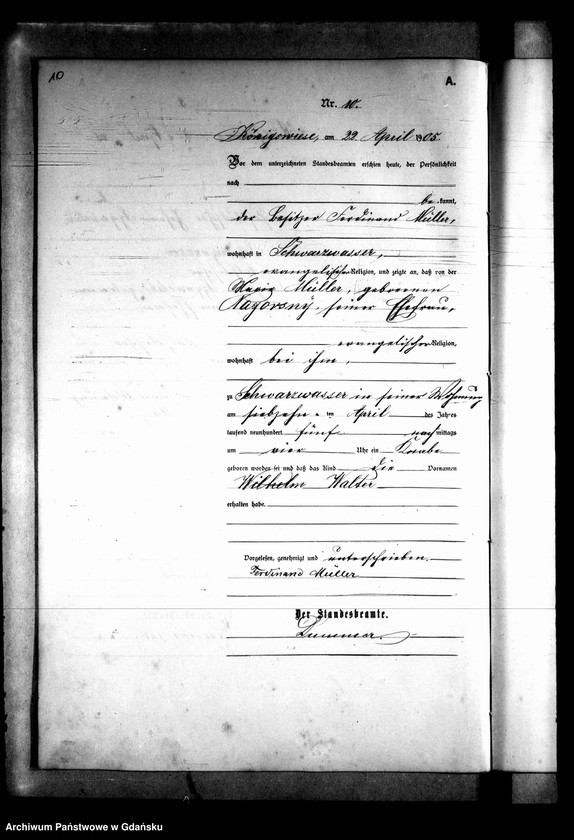 10
A.
Nr. 10.
Königswiese, am 22. April 1905.
Vor dem unterzeichneten Standesbeamten erschien heute, der Persönlichkeit
nach
be kannt,
der Besitzer Ferdinand Müller,
wohnhaft in Schwarzwasser,
evangelischer Religion, und zeigte an, daß von der
Maria Müller, geborenen
Nagorsny, seiner Ehefrau,
evangelischer Religion,
wohnhaft bei ihm,
zu Schwarzwasser in seiner Wohnung
am siebzehn ten April des Jahres
tausend neunhundert fünf nach mittags
um vier Uhr ein Knabe
geboren worden sei und daß das Kind die Vornamen
Wilhelm Walter
erhalten habe.
Vorgelesen, genehmigt und unterschrieben.
Ferdinand Müller
Der Standesbeamte.
Archiwum Państwowe w Gdańsku